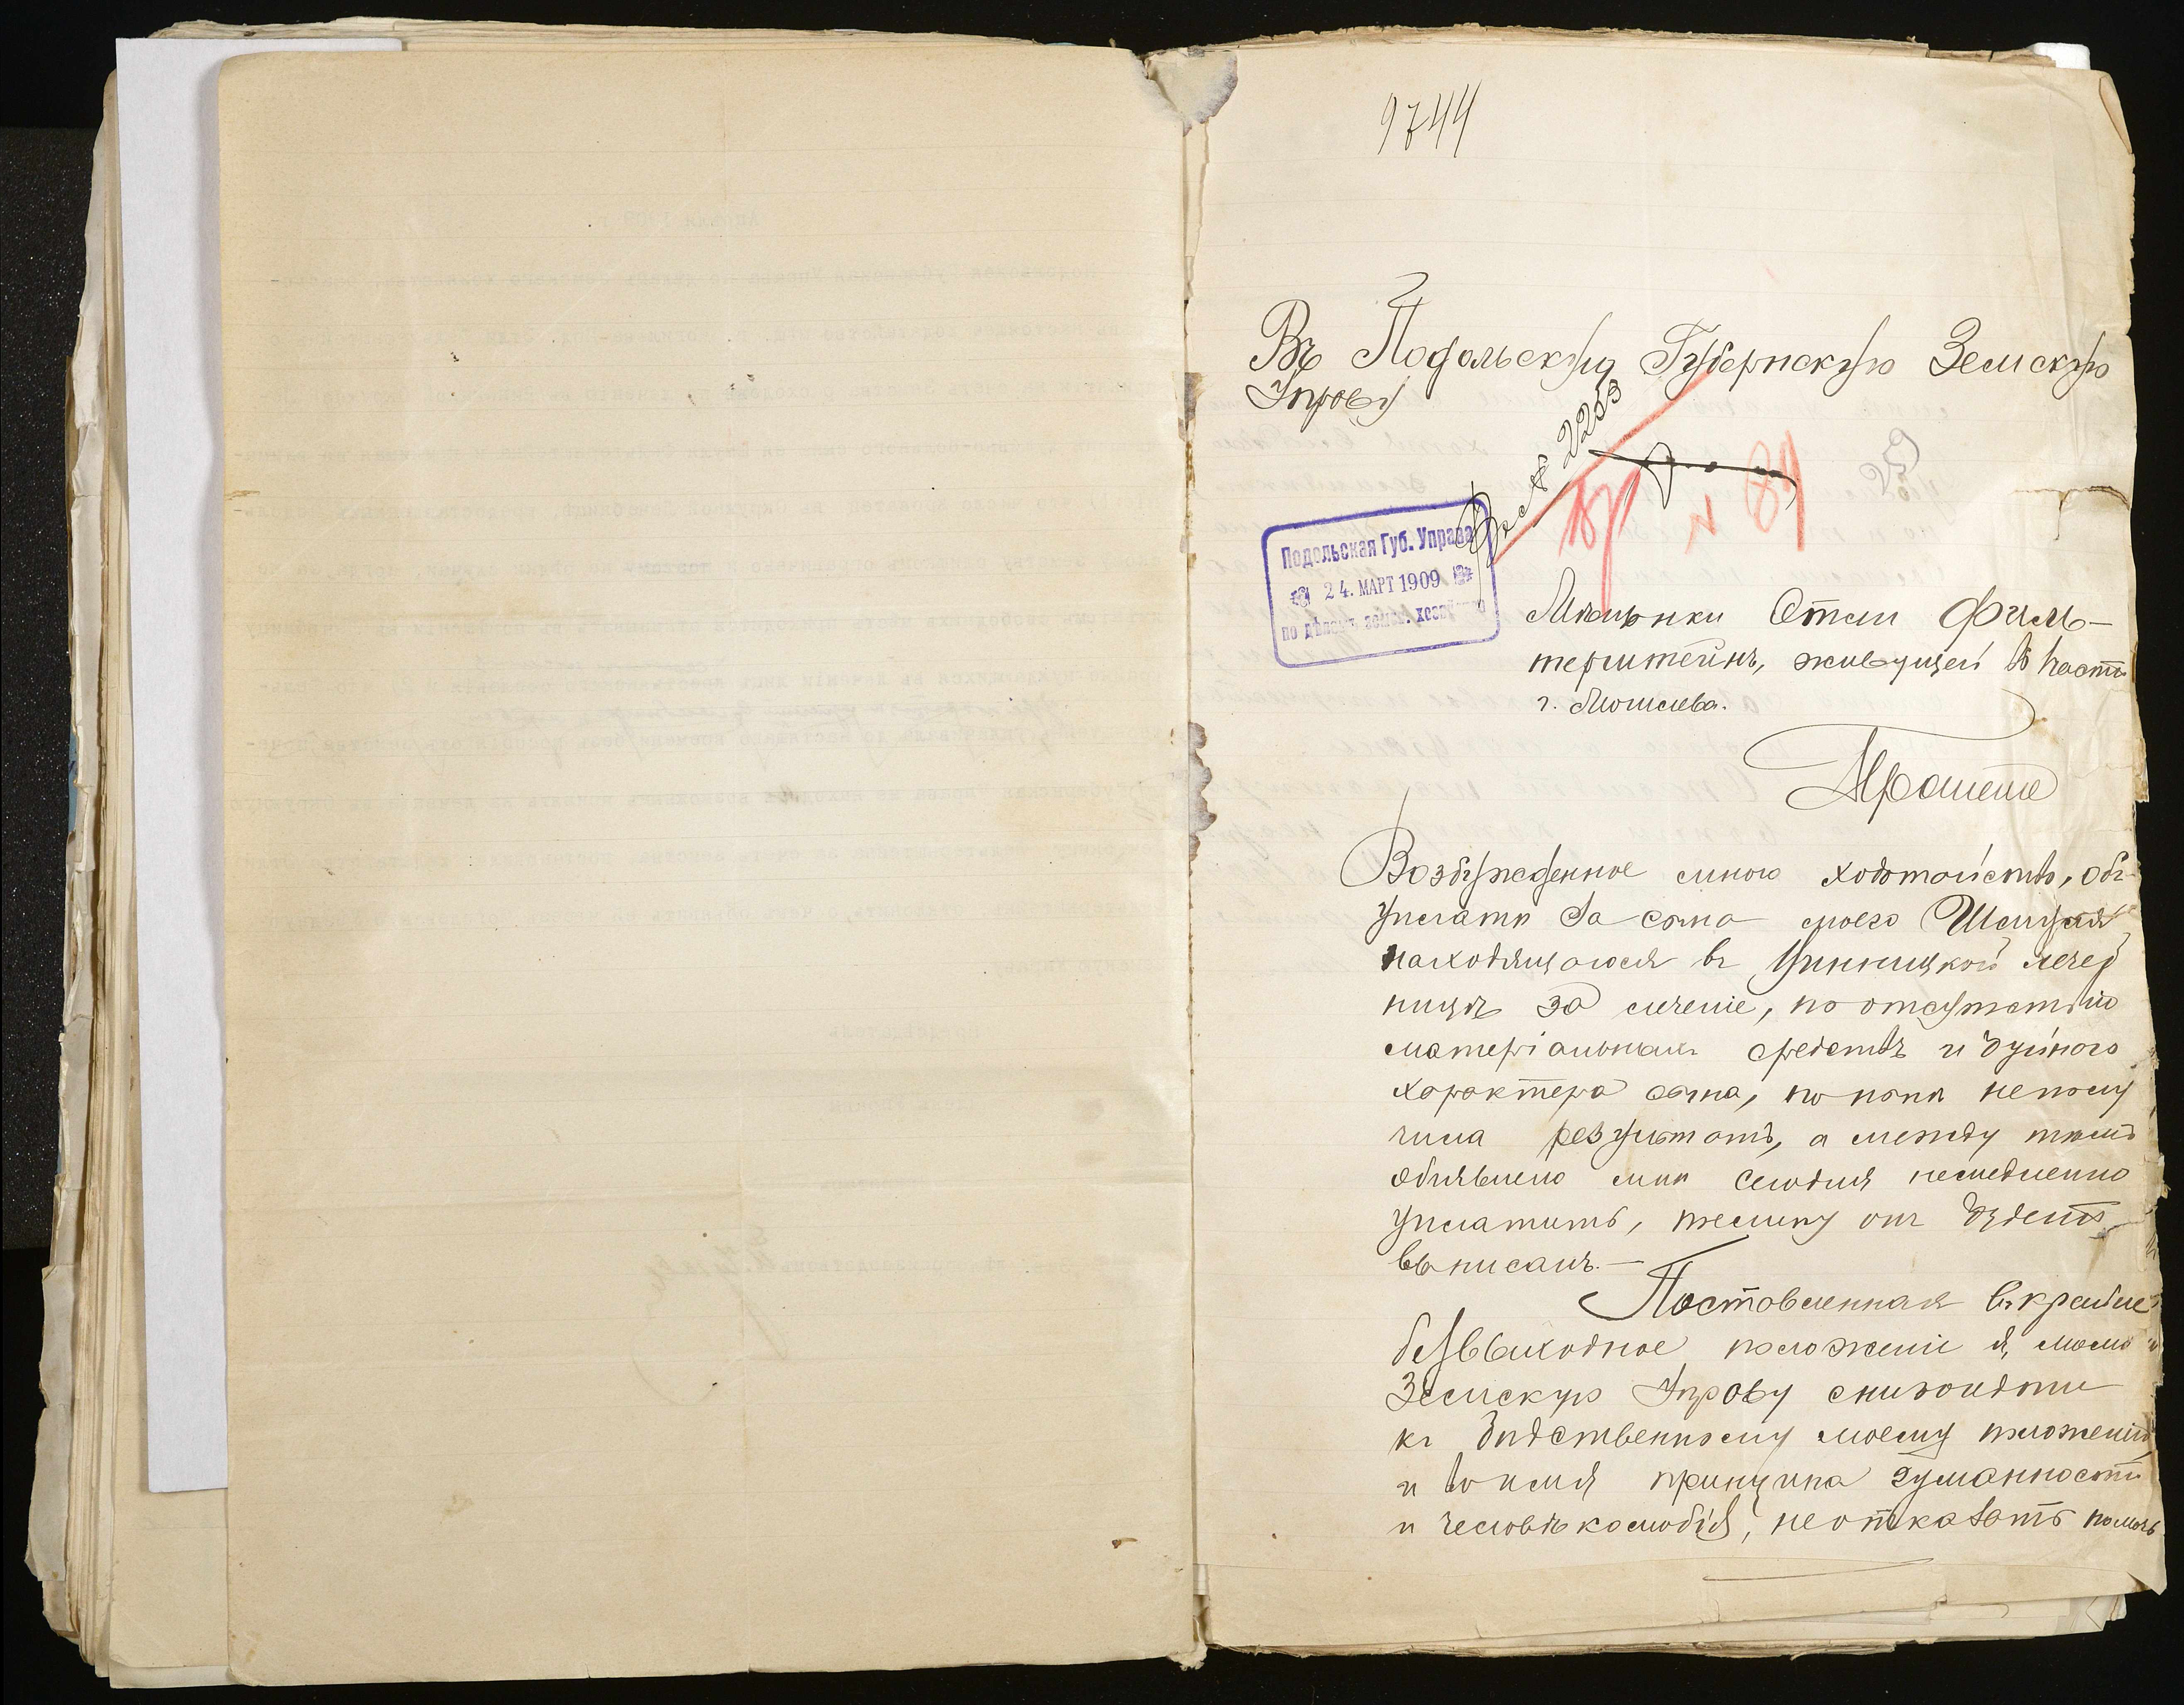 9744
Въ Подольскую Губернскую Земскую
Управу
2253
N 89
Подольская Губ. Управа
24. МАРТ 1909
по дѣламъ земск. хозяйства
Мѣщанки Этли Филь-
терштейнъ, живущей въ части
г. Могилева.
Прошеніе
Возбужденное мною ходотайство, объ
уплати за сына моего Шмуля
находящагося въ Винницкой лечеб
ницѣ за леченіе, по отсутствію
матеріальныхъ средствъ и буйного
характера сына, по попѣ неполу
чила результатъ, а между тѣмъ
объявлено мнѣ сегодня немедленно
уплатить, онъ будетъ
выписанъ.—
Поставленная въ крайне
безвыходное положеніе я, молю
Земскую Управу снизойти
къ бѣдственному моему положенію
и во имя принципа гуманности
и человѣколюбія, не отказать помочь